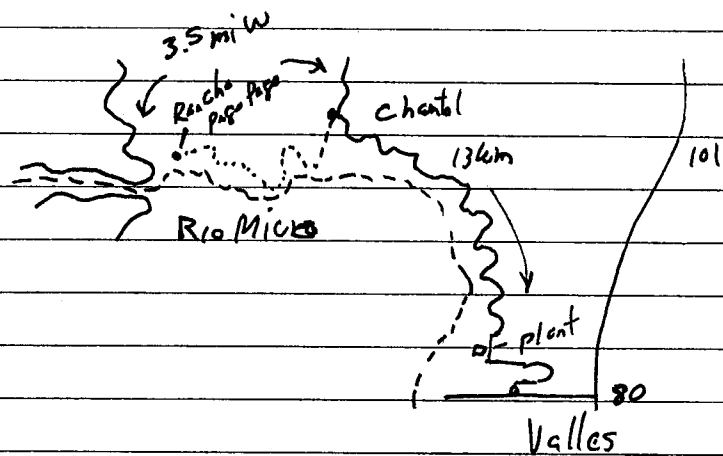 3.5 mi W
Rancho
Pago Pago
Chantol
13km
101
Rio Micos
plant
80
Valles